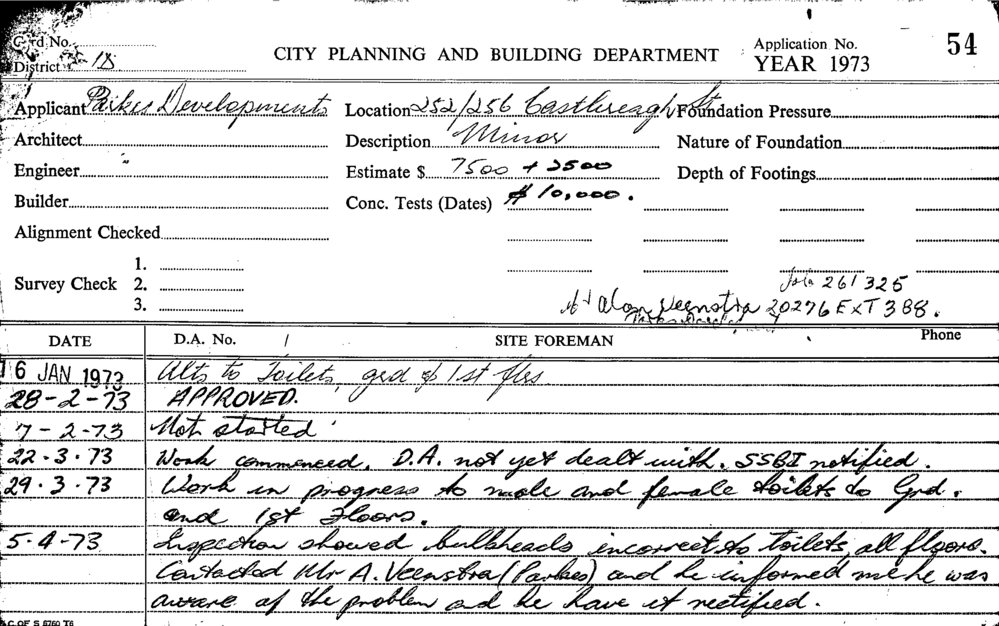 Card No.
District 18
CITY PLANNING AND BUILDING DEPARTMENT
Application No. 54
YEAR 1973
Applicant Parkes Developments Location 252/256 Castlereagh St Foundation Pressure
Architect Description Minor Nature of Foundation
Engineer " Estimate $ 7500 + 2500 Depth of Footings
Builder Conc. Tests (Dates) $10,000.
Alignment Checked
1.
Survey Check 2.
3.
261325
Alan Veenstra 20276 EXT 388.
DATE D.A. No. / SITE FOREMAN Phone
16 JAN 1973 Alts to Toilets, grd & 1st flrs
28-2-73 APPROVED.
7-2-73 Not started
22.3.73 Work commenced. D.A. not yet dealt with. SSBI notified.
29.3.73 Work in progress to male and female toilets to Grd.
and 1st Floors.
5-4-73 Inspection showed bulkheads incorrect to toilets, all floors.
Contacted Mr A. Veenstra (Parkes) and he informed me he was
aware of the problem and he have it rectified.
C OF S 5760 T6